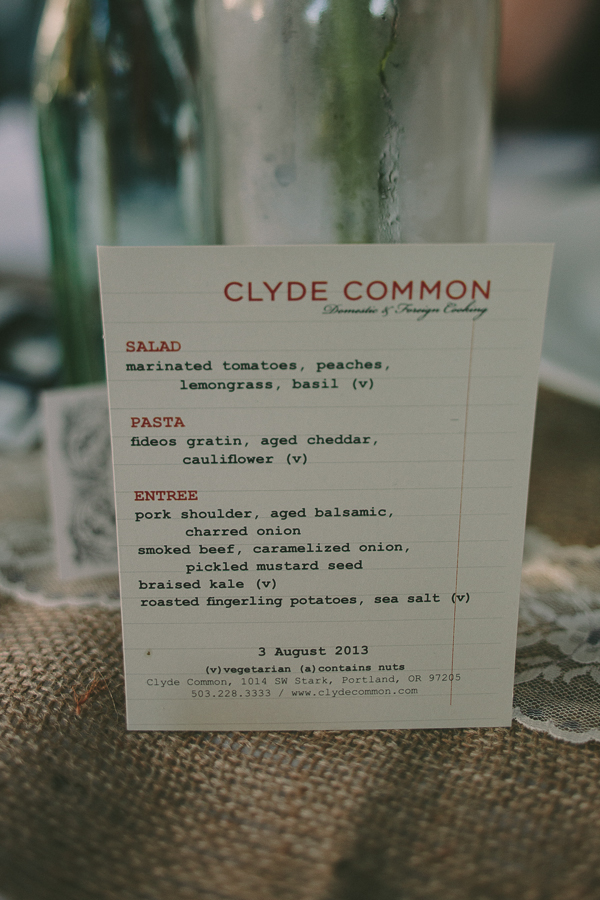 CLYDE COMMON
Domestic & Foreign Cooking
SALAD
marinated tomatoes, peaches,
lemongrass, basil (v)
PASTA
fideos gratin, aged cheddar,
cauliflower (v)
ENTREE
pork shoulder, aged balsamic,
charred onion
smoked beef, caramelized onion,
pickled mustard seed
braised kale (v)
roasted fingerling potatoes, sea salt (v)
3 August 2013
(v)vegetarian (a)contains nuts
Clyde Common, 1014 SW Stark, Portland, OR 97205
503.228.3333 / www.clydecommon.com